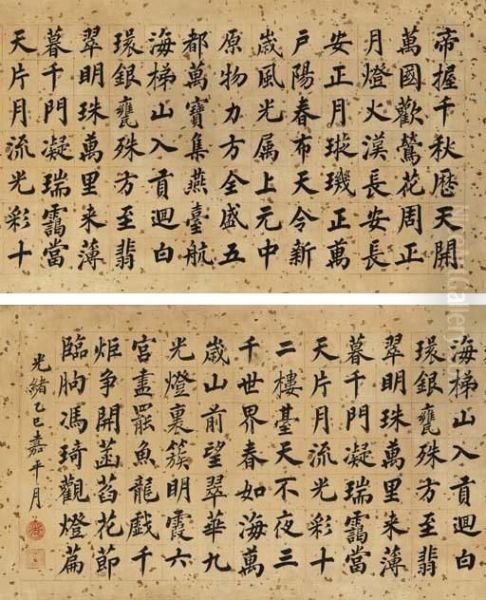 帝握千秋歷天開
萬國歡鶯花周正
月燈火漢長安長
安正月璇璣正萬
戶陽春布天令新
歲風光属上元中
原物力方全盛五
都萬寶集燕臺航
海梯山入貢迴白
環銀甕殊方至翡
翠明珠萬里来薄
暮千門凝瑞靄當
天片月流光彩十
海梯山入貢迴白
環銀甕殊方至翡
翠明珠萬里来薄
暮千門凝瑞靄當
天片月流光彩十
二樓臺天不夜三
千世界春如海萬
歲山前望翠華九
光燈裏簇明霞六
宮盡罷魚龍戲千
炬争開菡萏花節
臨朐馮琦觀燈篇
光緒乙巳嘉平月